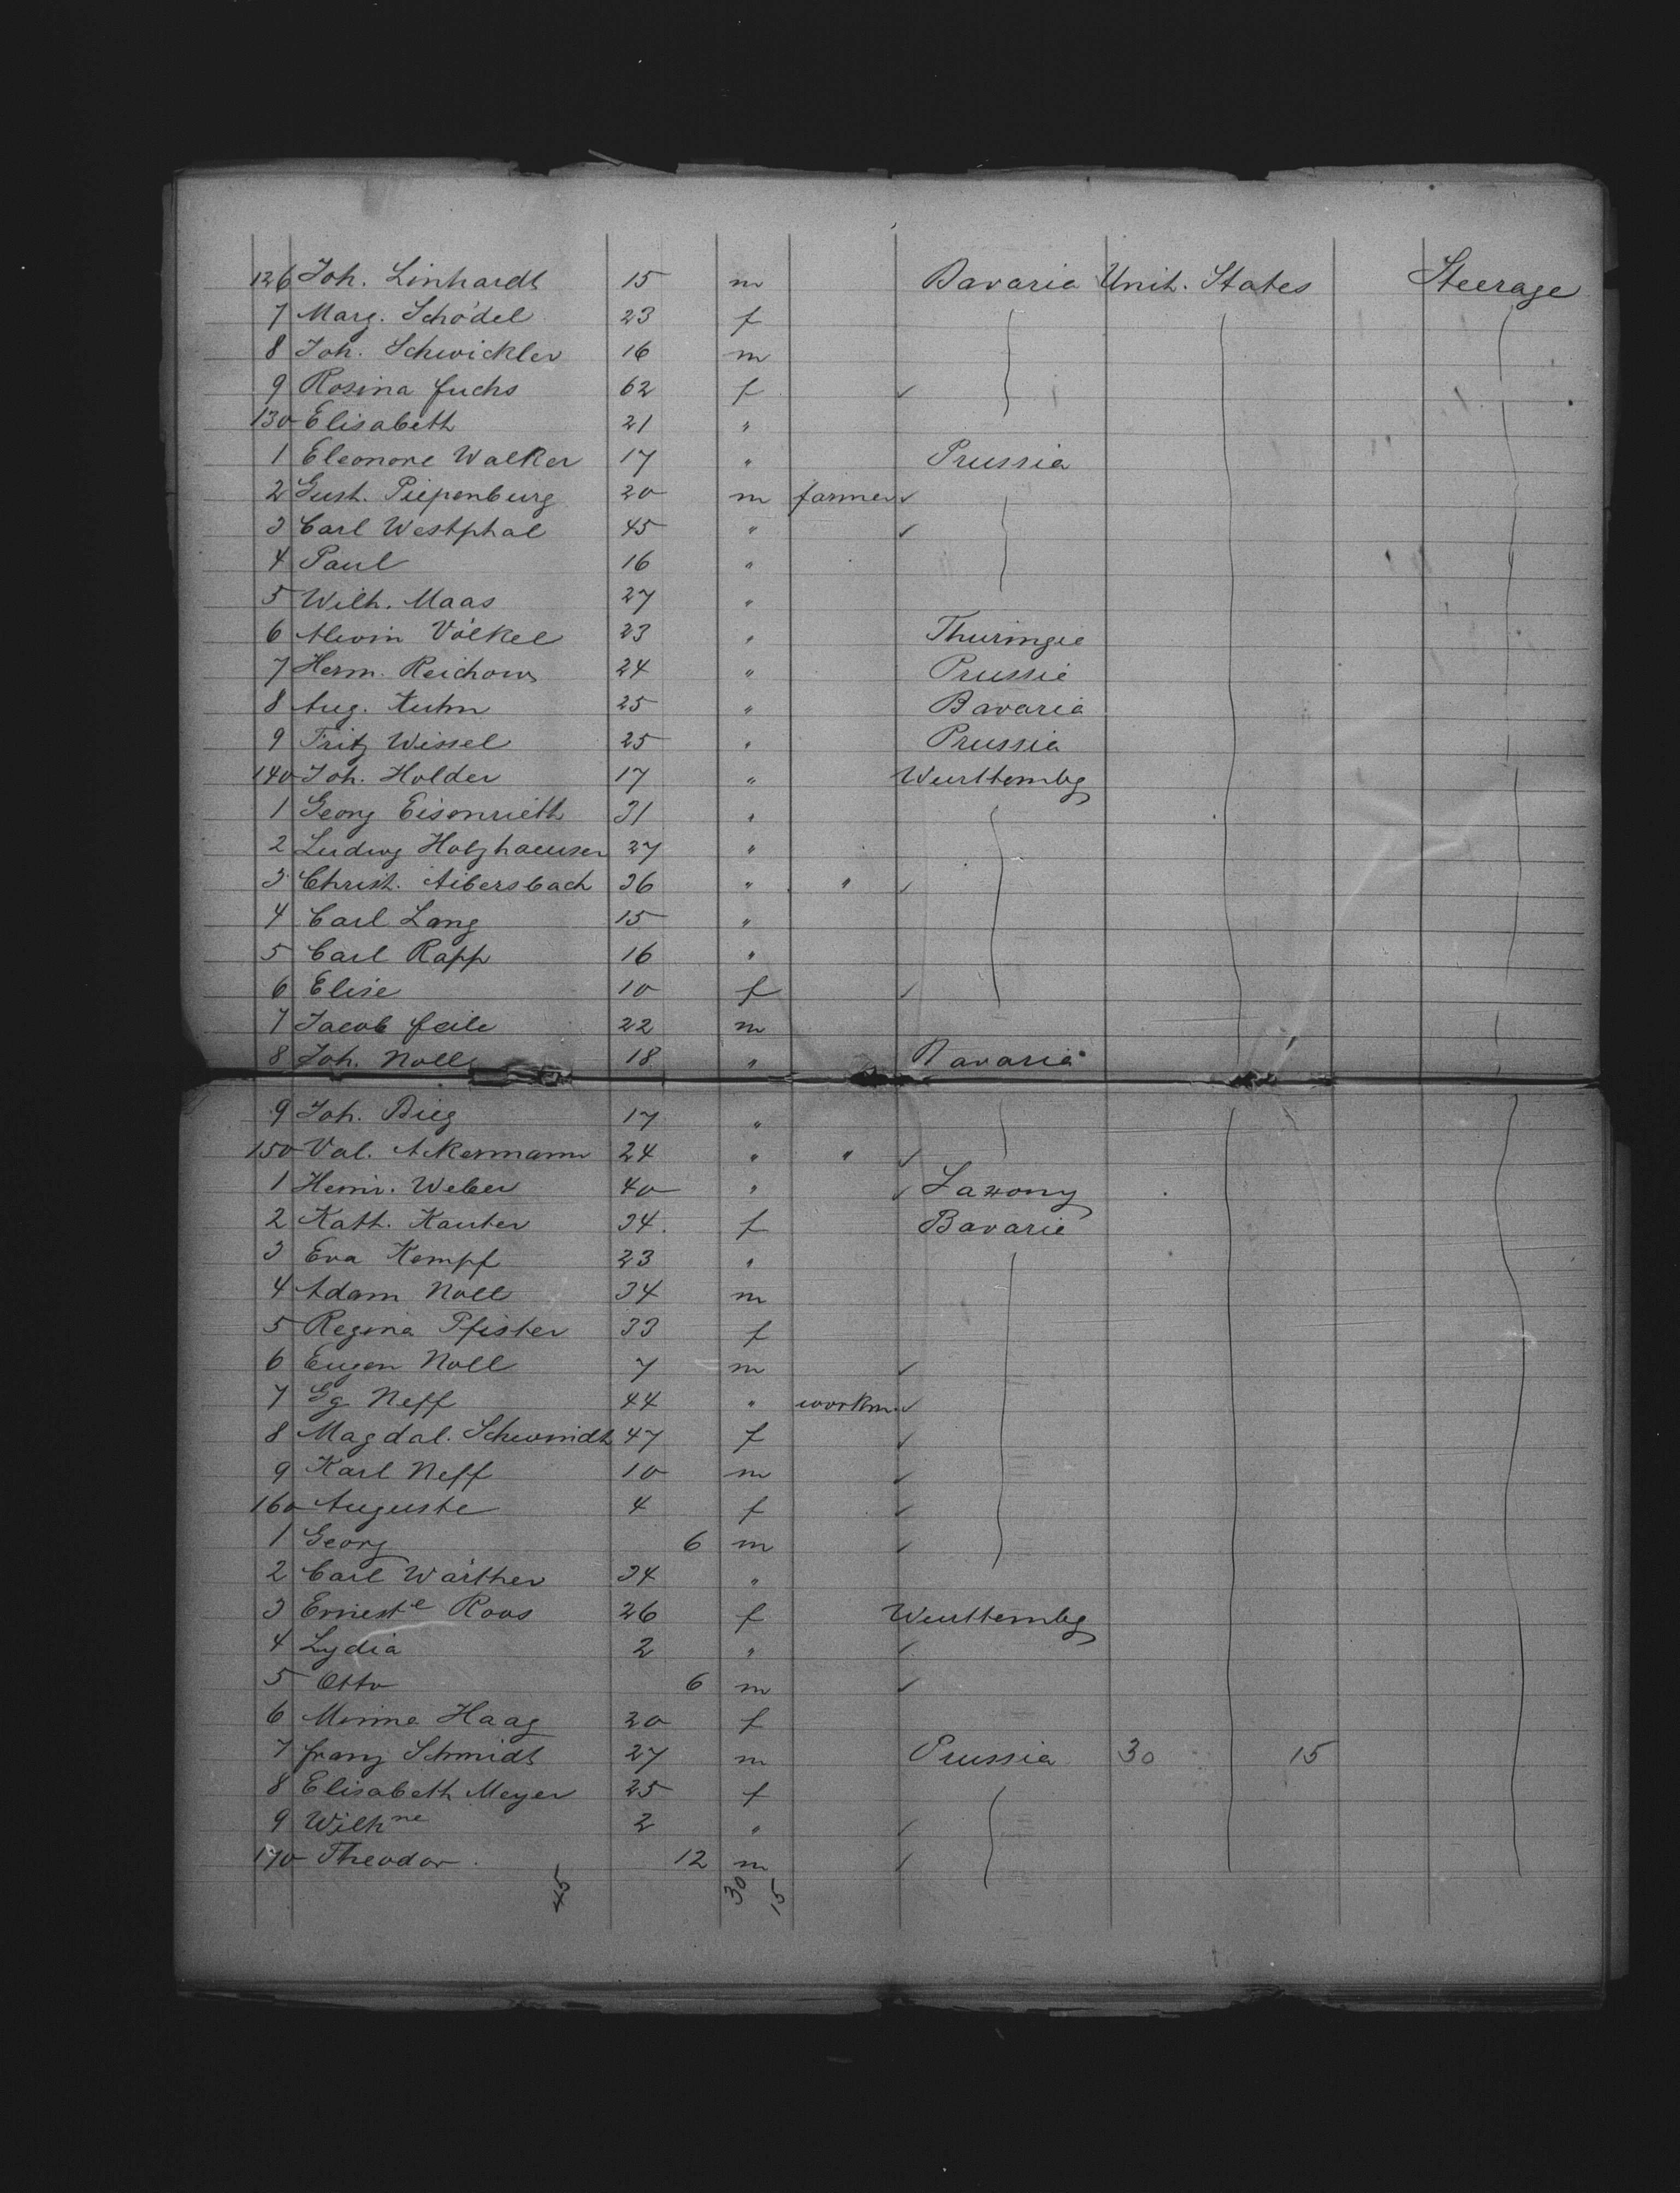 126 Joh. Linhardt 15 m Bavaria Unit. States Steerage
7 Marg. Schödel 23 f
8 Joh. Schwickler 16 m
9 Rosina Fuchs 62 f ✓
130 Elisabeth 21 "
1 Eleonore Walker 17 " Prussia
2 Gust. Piepenburg 20 m farmer ✓
3 Carl Westphal 45 " ✓
4 Paul 16 "
5 Wilh. Maas 27 "
6 Alwin Völkel 23 " Thuringia
7 Herm. Reichow 24 " Prussia
8 Aug. Kuhn 25 " Bavaria
9 Fritz Wissel 25 " Prussia
140 Joh. Holder 17 " Wurttembg
1 Georg Eisenrieth 31 "
2 Ludwg Holzhaeuser 27 "
3 Christ. Aibersbach 36 " " ✓
4 Carl Lang 15 "
5 Carl Rapp 16 "
6 Elise 10 f ✓
7 Jacob Feile 22 m
8 Joh. Noll 18 " Bavaria
9 Joh. Bieg 17 "
150 Val. Ackermann 24 " " ✓
1 Heinr. Weber 40 " ✓ Saxony
2 Kath. Kauter 34 f Bavaria
3 Eva Kempf 23 "
4 Adam Noll 34 m
5 Regina Pfister 33 f
6 Eugen Noll 7 m ✓
7 Gg Neff 44 " workm. ✓
8 Magdal. Schwmidt 47 f ✓
9 Karl Neff 10 m ✓
160 Auguste 4 f ✓
1 Georg 6 m ✓
2 Carl Wärther 34 "
3 Erneste Roos 26 f Wurttembg
4 Lydia 2 " ✓
5 Otto 6 m ✓
6 Minna Haag 20 f
7 Franz Schmidt 27 m Prussia 30 15
8 Elisabeth Meyer 25 f
9 Wilhne 2 " ✓
170 Theodor 12 m ✓
45 30 15